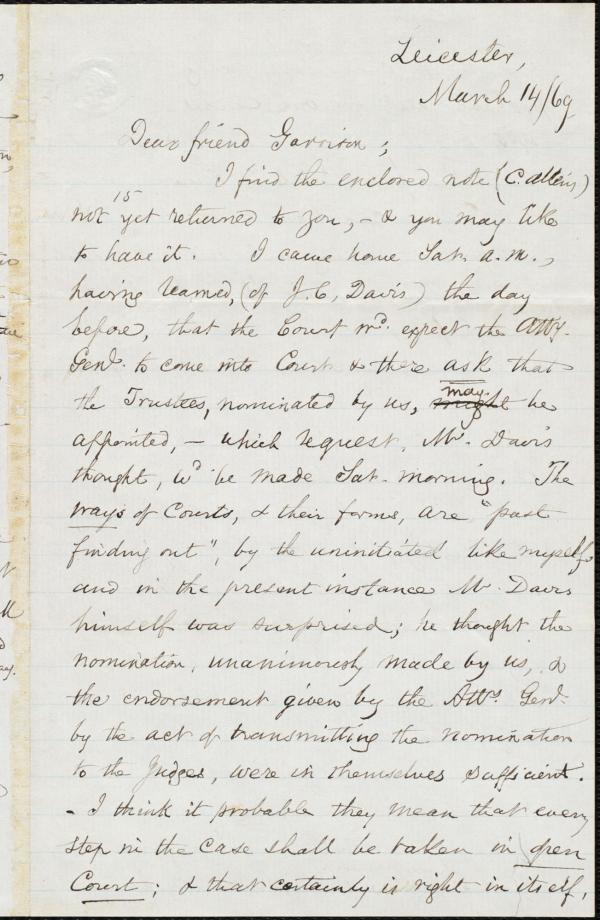 Leicester,
March 14/69
Dear friend Garrison;
I find the enclosed note (C. Allen's)
15
not yet returned to you, - & you may like
to have it. I came home Sat. a.m.,
having learned, (of J. C. Davis) the day
before, that the Court wd. expect the Atty.
Genl. to come into Court & there ask that
the Trustees, nominated by us, might may be
appointed, - which request, Mr. Davis
thought, wd. be made Sat. morning. The
ways of Courts, & their forms, are "past
finding out", by the uninitiated like myself,
and in the present instance Mr. Davis
himself was surprised; he thought the
nomination, unanimously made by us, &
the endorsement given by the Atty. Genl.
by the act of transmitting the nomination
to the Judges, were in themselves sufficient.
- I think it probable they mean that every
step in the case shall be taken in open
Court; & that certainly is right in itself,